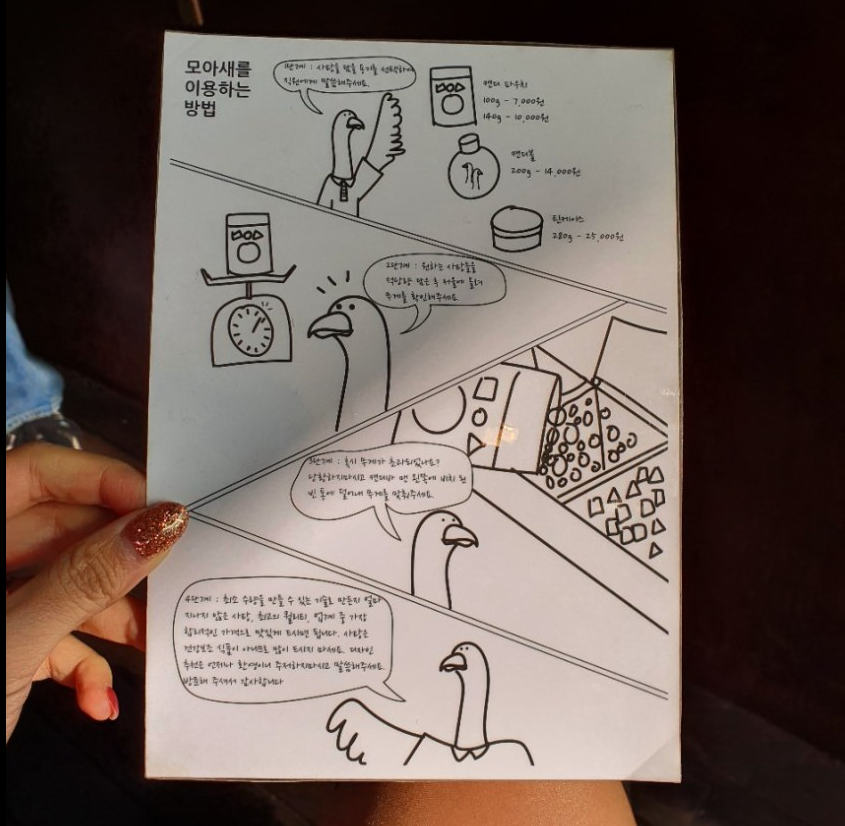 모아새를
이용하는
방법
1단계 : 사탕을 담을 용기를 선택하여
직원에게 말씀해주세요.
캔디 파우치
100g - 7,000원
140g - 10,000원
캔디볼
200g - 14,000원
틴케이스
280g - 25,000원
2단계 : 원하는 사탕들을
적당량 담은 후 저울에 올려
무게를 확인해주세요
3단계 : 혹시 무게가 초과되었나요?
당황하지마시고 캔디바 맨 왼쪽에 비치 된
빈 통에 덜어내 무게를 맞춰주세요.
4단계 : 최소 수량을 만들 수 있는 기술로 만든지 얼마
지나지 않은 사탕, 최고의 퀄리티, 업계 중 가장
합리적인 가격으로 맛있게 드시면 됩니다. 사탕은
건강보조 식품이 아니므로 많이 드시지 마세요. 디자인
추천은 언제나 환영이니 주저하지마시고 말씀해주세요.
방문해 주셔서 감사합니다